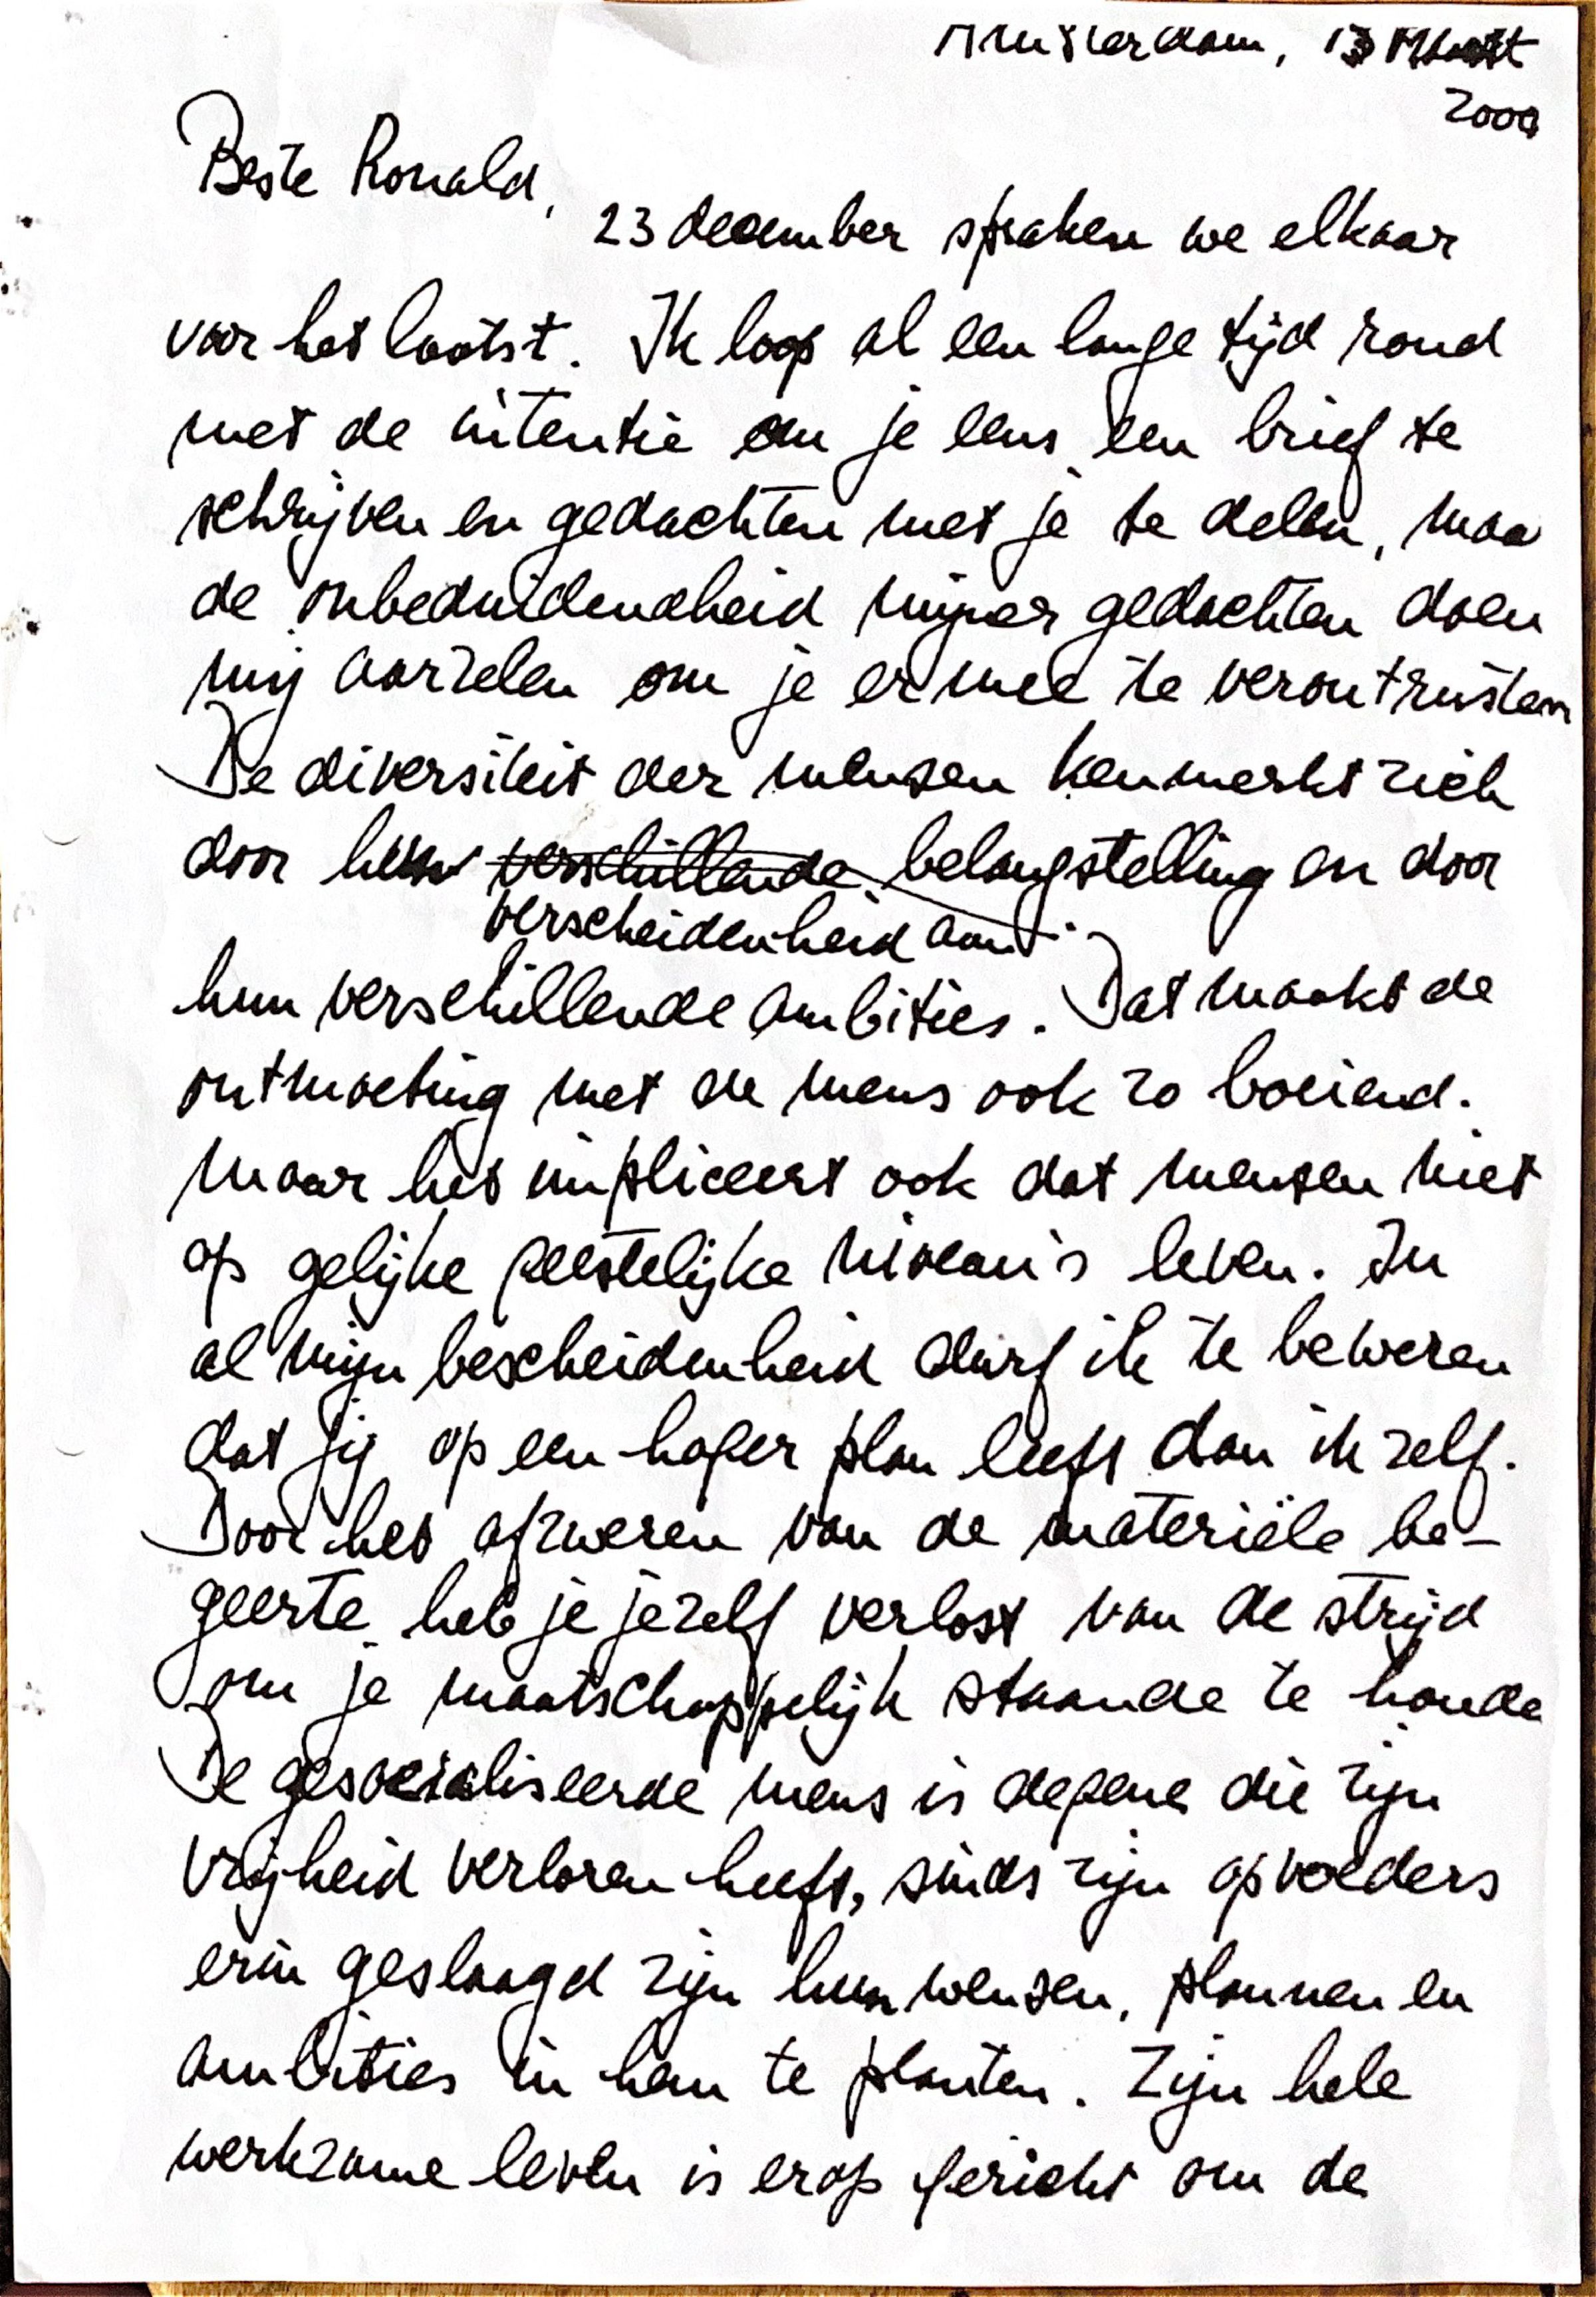 Amsterdam, 13 Maart
2000
Beste Ronald,
23 december spraken we elkaar
voor het laatst. Ik loop al een lange tijd rond
met de intentie om je eens een brief te
schrijven en gedachten met je te delen, maa
de onbeduidendheid mijner gedachten doen
mij aarzelen om je ermee te verontrusten
De diversiteit der mensen kenmerkt zich
door hun verschillende belangstelling en door
verscheidenheid aan
hun verschillende ambities. Dat maakt de
ontmoeting met de mens ook zo boeiend.
Maar het impliceert ook dat mensen niet
op gelijke geestelijke niveau's leven. In
al mijn bescheidenheid durf ik te beweren
dat jij op een hoger plan leeft dan ik zelf.
Door het afzweren van de materiële be-
geerte heb je jezelf verlost van de strijd
om je maatschappelijk staande te houde
De gesocialiseerde mens is degene die zijn
vrijheid verloren heeft, sinds zijn opvoeders
erin geslaagd zijn hun wensen, plannen en
ambities in hem te planten. Zijn hele
werkzame leven is erop gericht om de